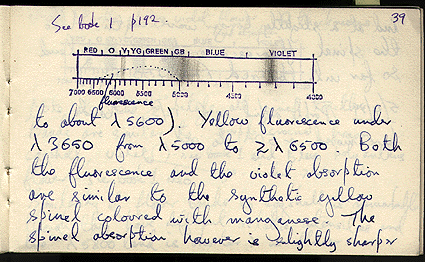 See book 1 p192.
39
RED O Y YG GREEN GB BLUE VIOLET
7000 6500 6000 5500 5000 4500 4000
fluorescence
to about λ5600). Yellow fluorescence under
λ3650 from λ5000 to λ6500. Both
the fluorescence and the violet absorption
are similar to the synthetic yellow
spinel coloured with manganese. The
spinel absorption however is slightly sharper